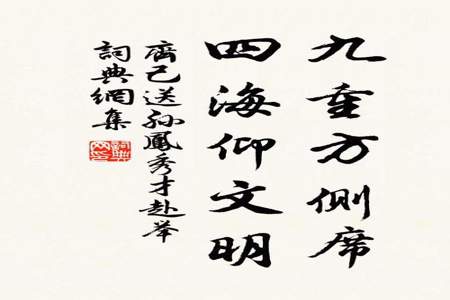 九重方側席
四海仰文明
齊己送孫鳳秀才赴举
詞典網集